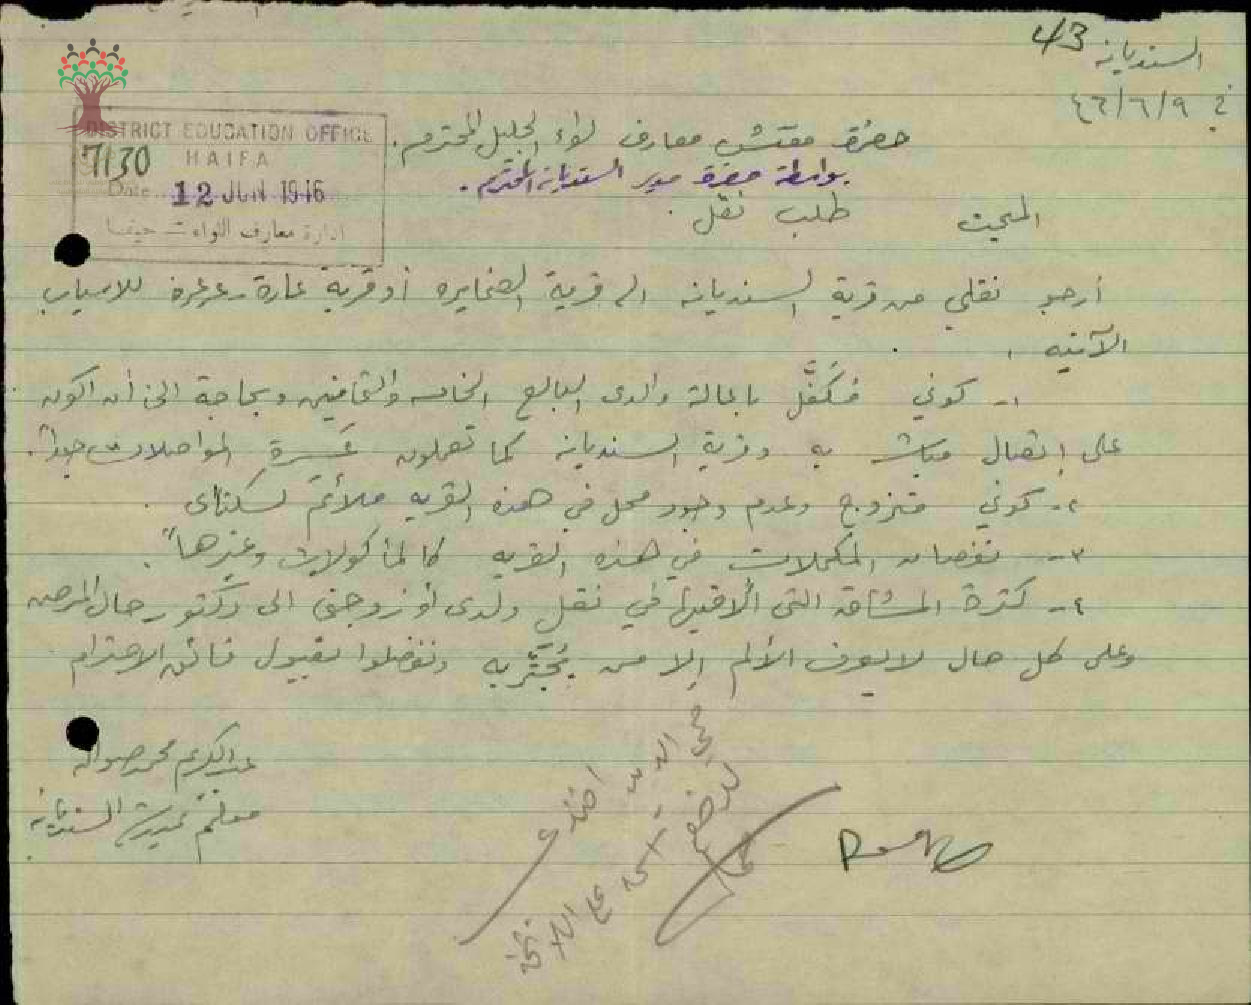 43
السنديانه
في ٩/٦/٤٦
DISTRICT EDUCATION OFFICE
HAIFA
7130
Date 12 JUN 1946
ادارة معارف اللواء حيفا
حضرة مفتش معارف لواء الجليل المحترم.
بواسطة حضرة مدير السنديانه المحترم.
المبحث طلب نقل.
أرجو نقلي من قرية السنديانه الى قرية او قرية عارة وعرعرة للاسباب
الآتيه
١- كوني مُكَفَّل باعالة والدي البالغ الخامسه والثمانين وبحاجة الى أن اكون
على إتصال مباشر به وقرية السنديانه كما تعلمون عَسِرة المواصلات جداً.
٢- كوني متزوج وعدم وجود محل في هذه القريه ملائم لسكناي.
٣- نقصان المكملات في هذه القريه كالمأكولات وغيرها".
٤- كثرة المشاقه التي ألاقيها في نقل ولدي أو زوجتي الى دكتور حال المرض
وعلى كل حال لا يعرف الألم إلا من يُجَرِّبه وتفضلوا بقبول فائق الاحترام
عبدالكريم محمد
معلم مدرسة السنديانه
افندي